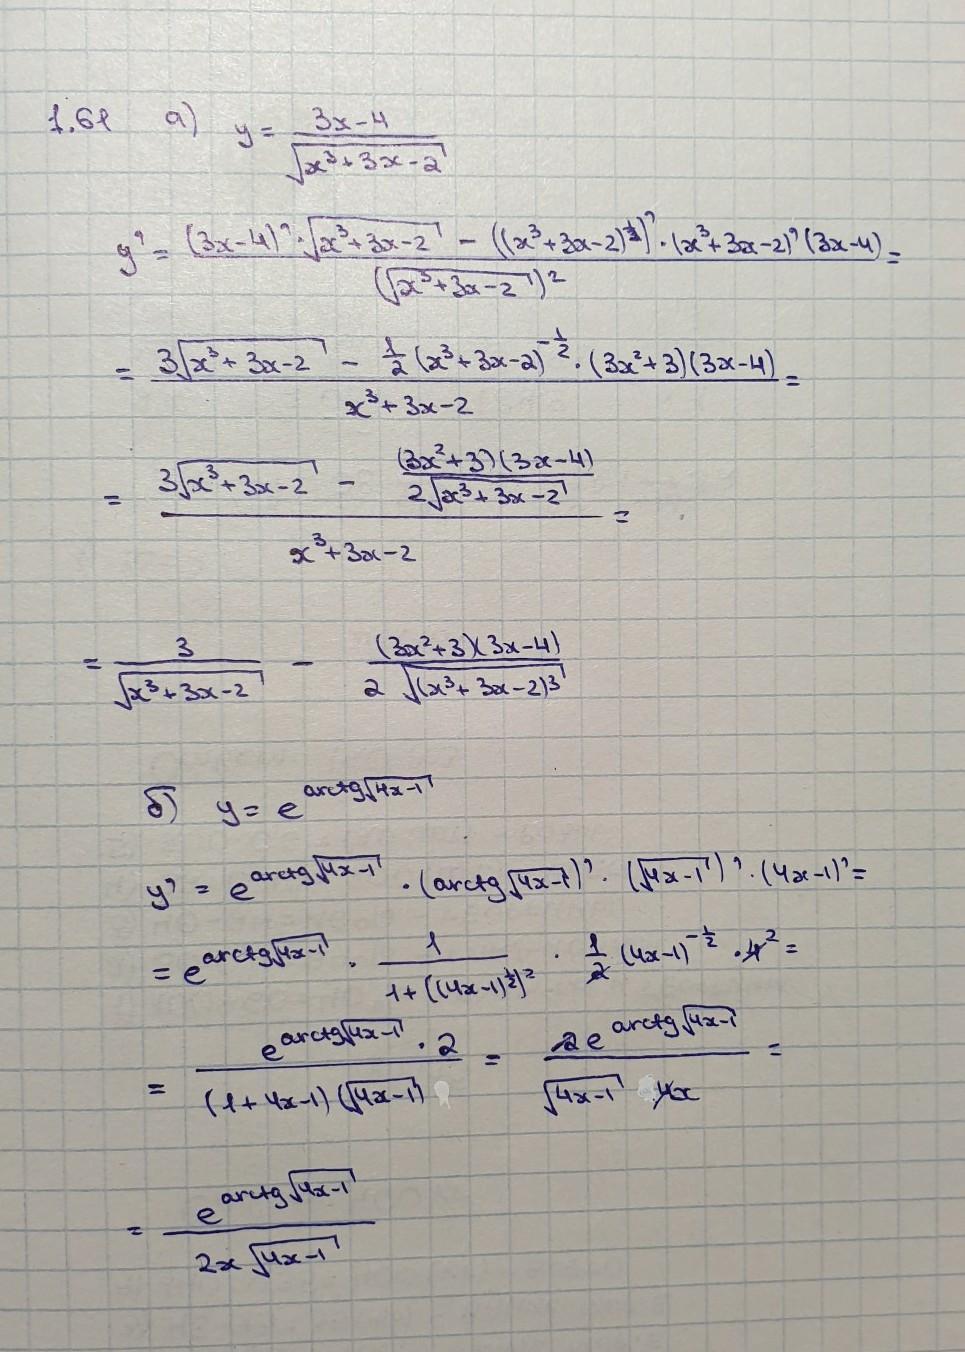 1.61 а) y = (3x-4)/√(x³+3x-2)
y' = ((3x-4)'·√(x³+3x-2) - ((x³+3x-2)^(1/2))'·(x³+3x-2)'(3x-4))/(√(x³+3x-2))² =
= (3√(x³+3x-2) - 1/2(x³+3x-2)^(-1/2)·(3x²+3)(3x-4))/(x³+3x-2) =
= (3√(x³+3x-2) - ((3x²+3)(3x-4))/(2√(x³+3x-2)))/(x³+3x-2) =
= 3/√(x³+3x-2) - ((3x²+3)(3x-4))/(2√((x³+3x-2)³))
б) y = e^(arctg√(4x-1))
y' = e^(arctg√(4x-1))·(arctg√(4x-1))'·(√(4x-1))'·(4x-1)' =
= e^(arctg√(4x-1))·1/(1+((4x-1)^(1/2))²)·1/2(4x-1)^(-1/2)·4² =
= (e^(arctg√(4x-1))·2)/((1+4x-1)(√(4x-1))) = (2e^(arctg√(4x-1)))/(√(4x-1) 4x) =
= e^(arctg√(4x-1))/(2x√(4x-1))